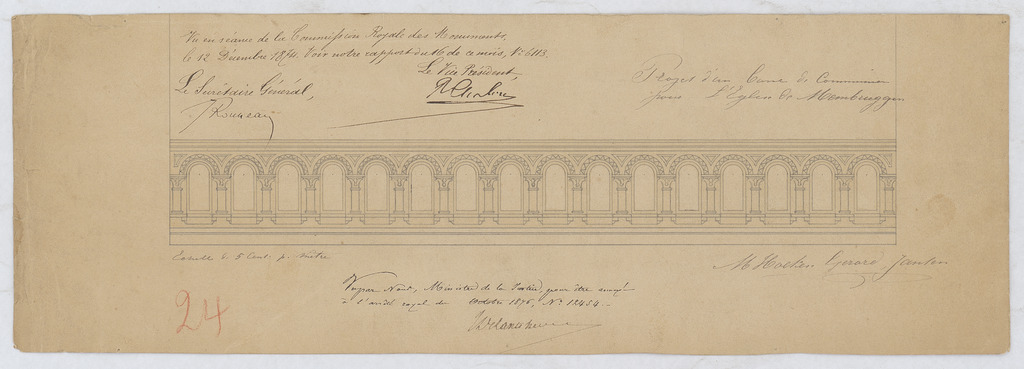 Vu en séance de la Commission Royale des Monuments,
le 12 Décembre 1874. Voir notre rapport du 16 de ce mois, No 6113.
Le Vice Président
Le Secrétaire Général,
J Rousseau
Projet d'un Banc de Communion
pour L'Eglise de Membruggen
Echelle de 5 Cent. p. Mètre
M Hoelen Gerard Janlen
Vu par Nous, Ministre de la Justice, pour être annexé
à l'arrêté royal du octobre 1875, No 12454
24